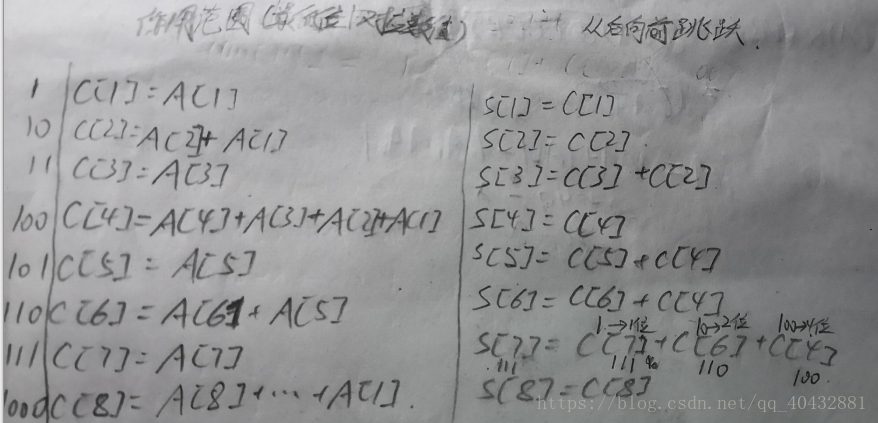 作用范围(最低位1及指数值)
从后向前跳跃.
1 C[1]=A[1]
10 C[2]=A[2]+A[1]
11 C[3]=A[3]
100 C[4]=A[4]+A[3]+A[2]+A[1]
101 C[5]=A[5]
110 C[6]=A[6]+A[5]
111 C[7]=A[7]
1000 C[8]=A[8]+…+A[1].
S[1]=C[1]
S[2]=C[2].
S[3]=C[3]+C[2]
S[4]=C[4]
S[5]=C[5]+C[4]
S[6]=C[6]+C[4]
1→1位 10→2位 100→4位
S[7]=C[7]+C[6]+C[4]
111 111 110 100.
S[8]=C[8]
https://blog.csdn.net/qq_40432881